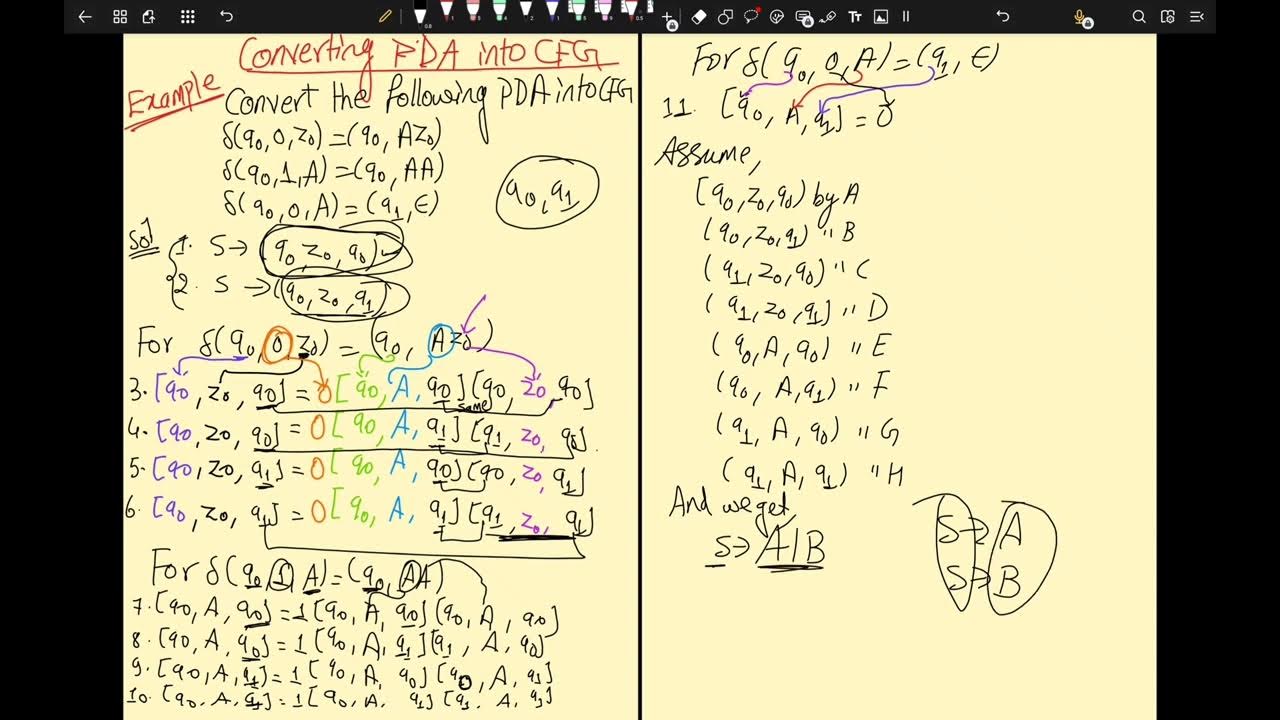 Converting PDA into CFG
Example
Convert the following PDA into CFG
δ(q0,0,z0)=(q0,Az0)
δ(q0,1,A)=(q0,AA)
δ(q0,0,A)=(q1,ϵ)
q0,q1
sol
1. S→ (q0,z0,q0)
2. S→ (q0,z0,q1)
For δ(q0,0,z0) = (q0, Az0)
3. [q0, z0, q0] = 0[q0, A, q0][q0, z0, q0]
same
4. [q0, z0, q0] = 0[q0, A, q1][q1, z0, q0]
5. [q0, z0, q1] = 0[q0, A, q0][q0, z0, q1]
6. [q0, z0, q1] = 0[q0, A, q1][q1, z0, q1]
For δ(q0,1,A)=(q0,AA)
7. [q0, A, q0] = 1[q0, A, q0][q0, A, q0]
8. [q0, A, q0] = 1[q0, A, q1][q1, A, q0]
9. [q0, A, q1] = 1[q0, A, q0][q0, A, q1]
10. [q0, A, q1] = 1[q0, A, q1][q1, A, q1]
For δ(q0,0,A)=(q1,ϵ)
11. [q0, A, q1] = 0
Assume,
[q0,z0,q0) by A
(q0,z0,q1) " B
(q1,z0,q0) " C
(q1,z0,q1] " D
(q0,A,q0) " E
(q0, A,q1) " F
(q1, A, q0) " G
(q1, A, q1) " H
And we get,
S→ A/B
S→ A
S→ B